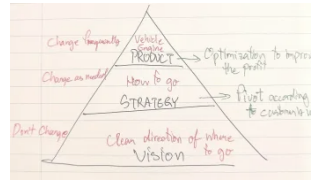 Change frequently
Vehicle
Engine
PRODUCT
Optimization to improve
the profit
Change as needed
How to go
STRATEGY
Pivot according
to
Don't Change
Clean direction of where
to go
Vision